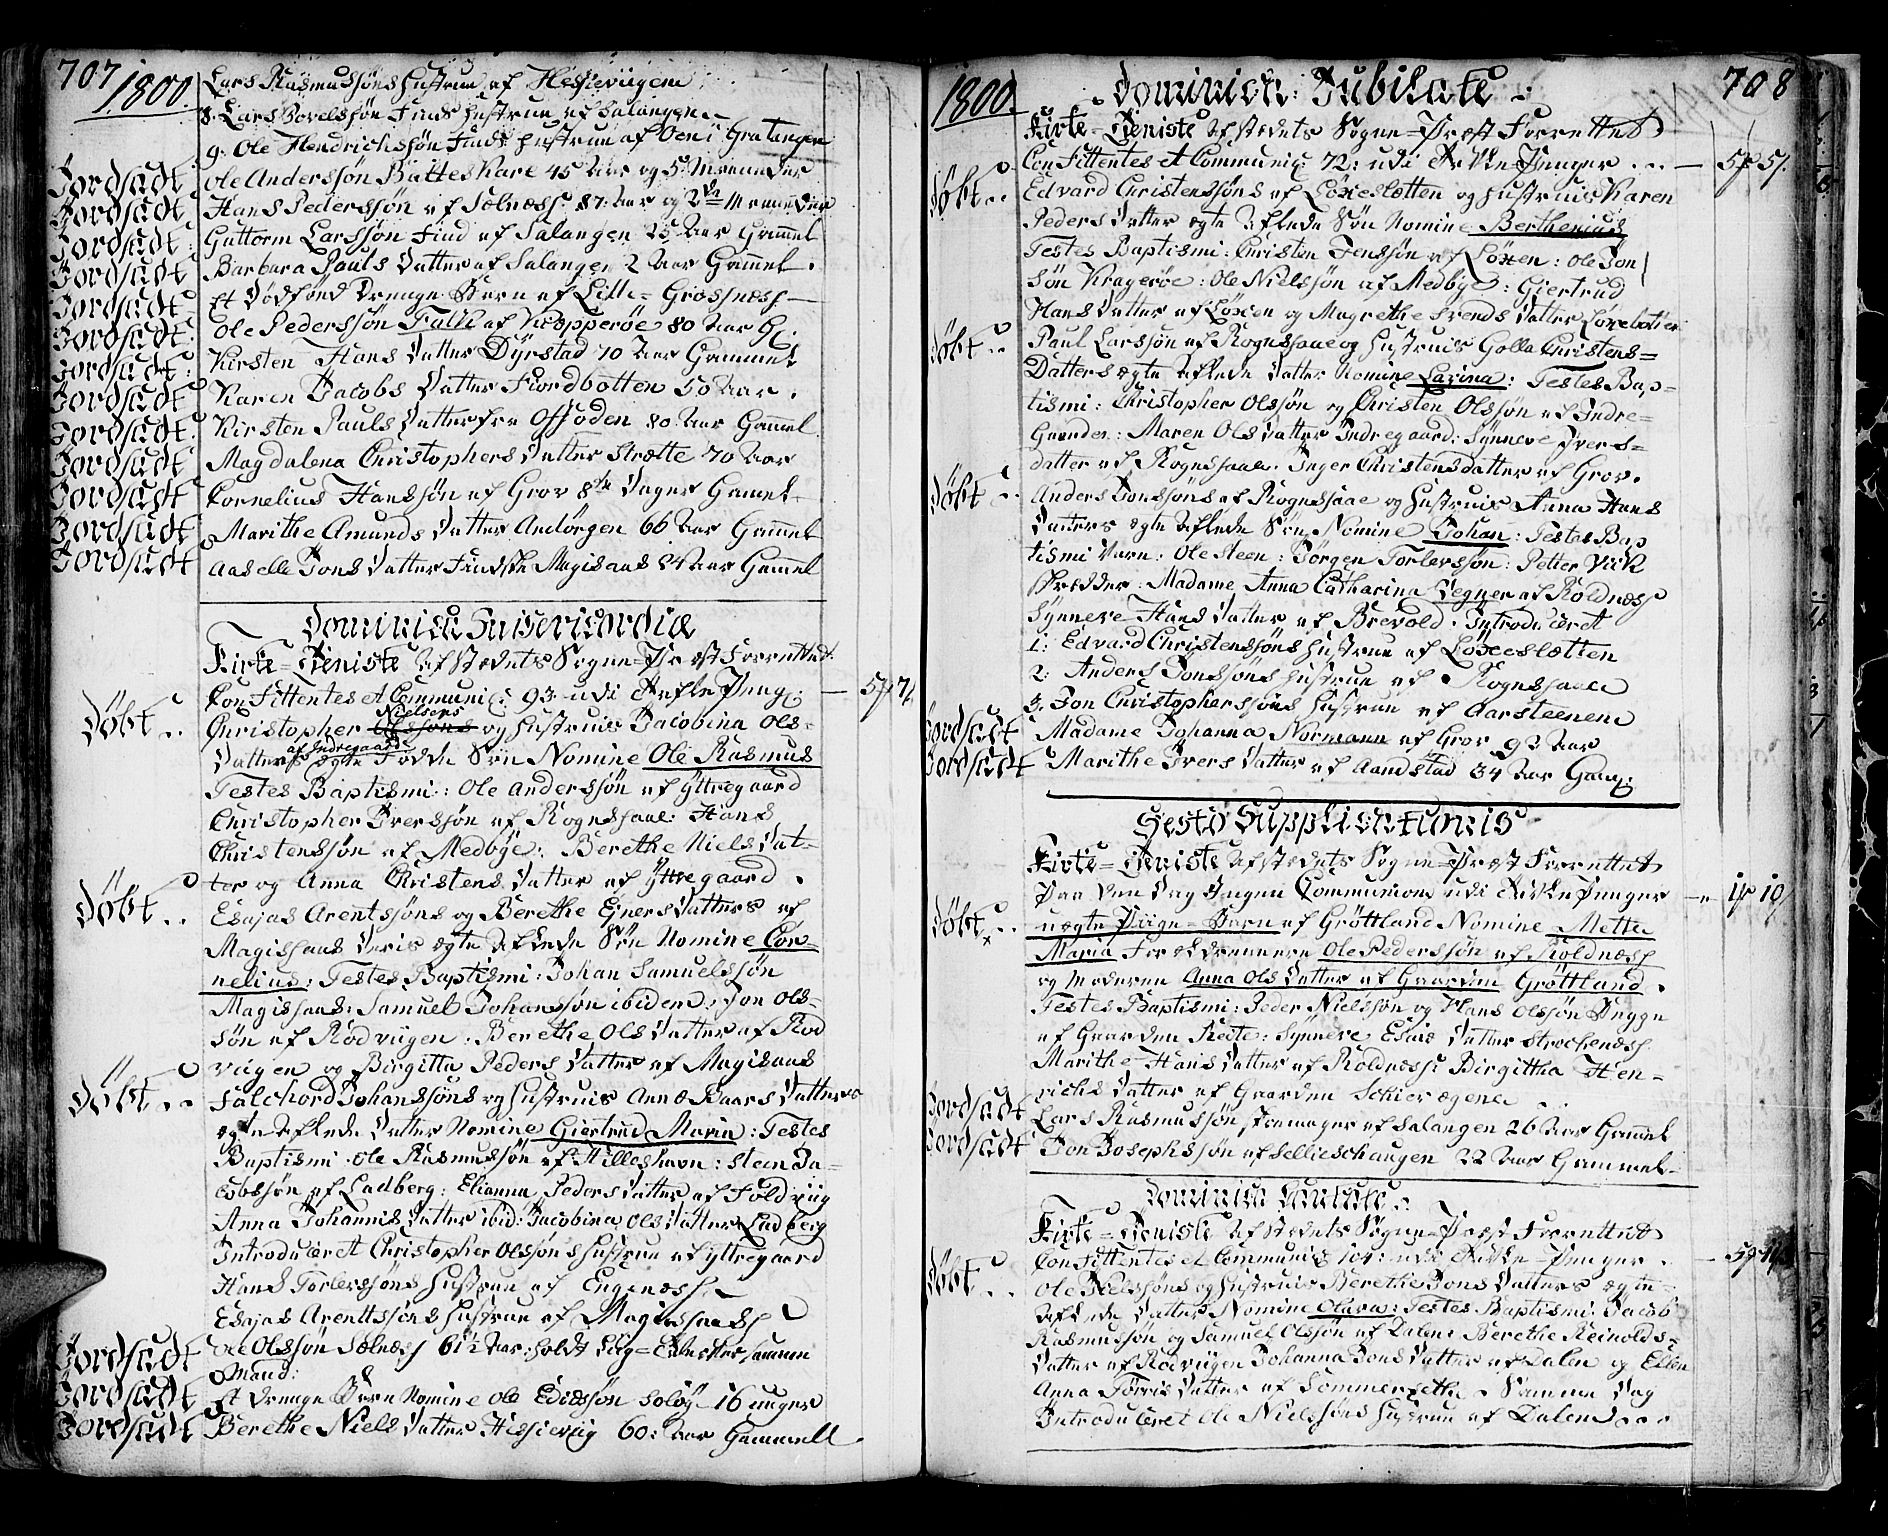 707 1800.
Lars Rasmussøns Hustrue af Hessieviigen
8. Lars Bovelssøn Finds Hustrue af Salangen
9. Ole Hendrichssøn Finds Hustrue af Oen i Gratangen
Jordsadt Ole Anderssøn Battes Kare 45 Aar og 5 Maaneder
Jordsadt Hans Pederssøn af Selness 87 Aar og 2de Maaneder
Jordsadt Guttorm Larssøn Find af Salangen 25 Aar Gammel
Jordsadt Barbara Pauls Datter af Salangen 2 Aar Gammel.
Jordsadt Et Dødfød Drenge Barn af Lille-Grossness
Jordsadt Ole Pederssøn Falk af Kropperøe 80 Aar G:
Jordsadt Kirsten Hans Datter Dyrstad 70 Aar Gammel
Jordsadt Karen Jacobs Datter Fiordbotten 50 Aar.
Jordsadt Kirsten Pauls Datter fra Offoden 80 Aar Gammel
Jordsadt Magdalena Christophers Datter Strætte 70 Aar
Jordsadt Cornelius Hanssøn af Grov 8te Dager Gamel
Jordsadt Marithe Amunds Datter Andørgen 66 Aar Gammel
Jordsadt Aaselle Jons Datter Findske Magisaas 24 Aar Gammel
Dominica Misericordiæ
Kirke-Tieniste af Stedets Sogne-Præst Forrettet.
Confittentes et Communic: 93 udi Tafle Peng:
Døbt Christopher Nielsens og Hustrues Jacobina Ols-
Datters af Indregaard ægte Fødde Søn Nomine Ole Rasmus
Testes Baptismi: Ole Anderssøn af Yttregaard
Christopher Iverssøn af Rognsaae: Hans
Christenssøn af Medbye: Berethe Niels Dat-
ter og Anna Christens Datter af Yttregaard.
Døbt Esajas Arentssøns og Berethe Ejners Datters af
Magissaas Deris ægte Aflede Søn Nomine Cor-
nelius: Testes Baptismi: Johan Samuelssøn
Magissaas: Samuel Johanssøn ibidem: Jon Ols-
søn af Rødviigen: Berethe Ols Datter af Rød
viigen og Birgitta Peders Datter af Magisaas
Døbt Falchord Johanssøns og Hustrues Anne Baars Datters
ægte Aflede Datter Nomine Giertrud Maria: Testes
Baptismi: Ole Rasmussøn af Hilleshavn: Steen Ja-
cobssøn af Ladberg: Elianna Peders Datter af Foldviig
Anna Johannis Datter ibid: Jacobina Ols Datter Ladberg
Introduceret Christopher Olssøns Hustrue af Yttregaard
Hans Torlerssøns Hustrue af Engenæss
Esajas Arenttssøns Hustrue af Magissaass
Jordsadt Ole Olssøn Selnæss 61½ Aar
Mand:
Jordsadt Et Drenge Barn Nomine Ole Edissøn Soløy 16 uuger
Jordsadt Berethe Niels Datter Hessieviig 60: Aar Gammell
1800. 708
Dominica: Jubilate
Kirke-Tieniste af Stedets Sogne-Præst Forrettet
Confittentes et Communic: 72: udi Tafle-Penger
Døbt Edvard Christenssøns af Løxesletten og Hustrues Karen
Peders Datter ægte Aflede Søn Nomine Berthenius
Testes Baptismi: Christen Jenssøn af Løxen: Ole Jon
søn Kragerøe: Ole Nielssøn af Medbye: Giertrud
Hans Datter af Løxen og Magrethe Svends Datter Løxebotten
Døbt Paul Larssøn af Rognsaae og Hustrues Golla Christens-
Datters ægte Aflede Datter Nomine Lavina: Testes Bap-
tismi: Christopher Olssøn og Christen Olssøn af Indre-
Gaarden: Maren Ols Datter Indregaard: Synneve Ivers-
datter af Rognssaae: Inger Christensdatter af Grov.
Døbt Anders Jonssøns af Rognssaae og Hustrues Anna Hans
Datters ægte Aflede Søn Nomine Johan: Testes Bap
tismi Vare: Ole Steen: Jørgen Torlerssøn: Petter Vick
Skredder: Madame Anna Catharina Wegner af Roldness
Synneve Hans Datter af Brevold. Introduceret
1: Edvard Christenssøns Hustrue af Løxesletten
2: Anders Jonssøns Hustrue af Rognssaae
3. Jon Christopherssøns Hustrue af Aarsteenene
Jordsadt Madame Johanna Normann af Grov 92 Aar
Jordsadt Marithe Ivers Datter af Aandstad 34 Aar Gam:
Festo Supplicationis
Kirke-Tieniste af Stedets Sogne-Præst Forrettet
Paa Den Dag Ingen Communion udi Tafle Penger
Døbt uægte Piige-Barn af Grøttland Nomine Mette
Maria Forældrennene Ole Pederssøn af Roldness
og Moderen Anna Ols Datter af Gaarden Grøttland.
Testes Baptismi: Peder Nielssøn og Hans Olssøn Bugge
af Gaarden Røkte: Synneve Esais Datter Strochenæss.
Marithe Hans Datter af Roldness: Birgittha Hen-
richs Datter af Gaarden Schierægene
Jordsadt Lars Rasmussøn Skomager af Salangen 26 Aar Gammel
Jordsadt Jon Josephssøn af Sellieschougen 22 Aar Gammel.
Dominica Cantate:
Kirke-Tieniste af Stedets Sogne-Præst Forrettet
Confittentes et Communic 104: udi Tafle-Penger
Døbt Ole Nielssøns og Hustrues Berethe Jons Datters ægte
Aflede Datter Nomine Olava: Testes Baptismi: Jacob
Rasmussøn og Samuel Olssøn af Dalen: Berethe Reinolds-
Datter af Rødviigen Johanna Jons Datter af Dalen og Ellen
Anna Tørris Datter af Sommersethe. Samme Dag
Introduceret Ole Nielssøns Hustrue af Dalen